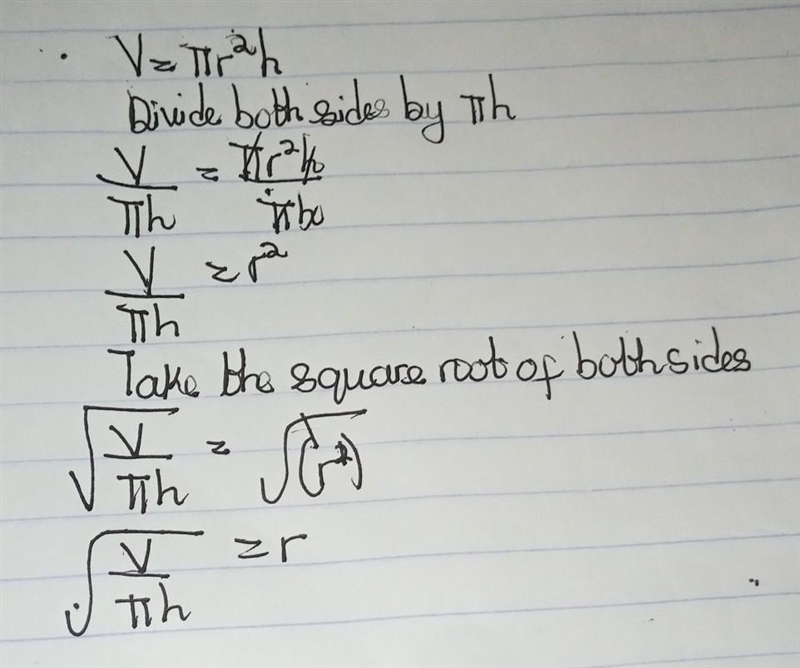 V = πr²h
Divide both sides by πh
V/πh = πr²h/πh
V/πh = r²
Take the square root of both sides
√(V/πh) = √(r²)
√(V/πh) = r